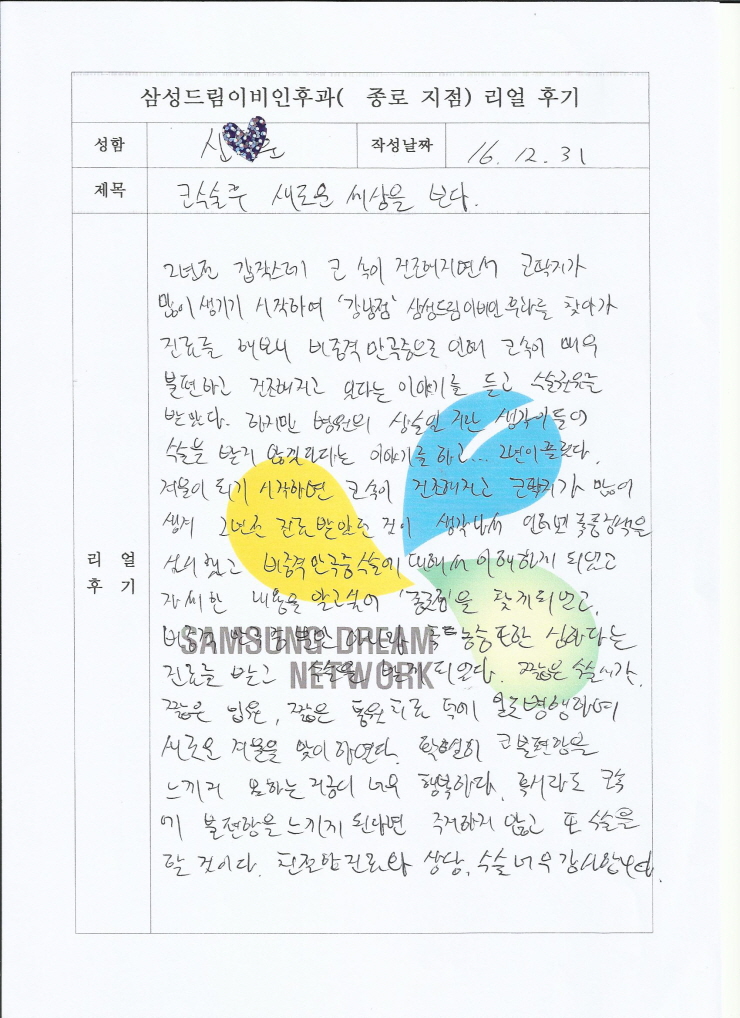 삼성드림이비인후과( 종로 지점) 리얼 후기
성함 신 작성날짜 16. 12. 31
제목 코수술후 새로운 세상을 보다.
리 얼
후 기
2년전 갑작스레 코 속이 건조해지면서 코딱지가
많이 생기기 시작하여 '강남점' 삼성드림이비인후과를 찾아가
진료를 해보니 비중격만곡증으로 인해 코속이 매우
불편하고 건조해지고 있다는 이야기를 듣고 수술권유를
받았다. 하지만 병원의 상술일 지란 생각이 들어
수술을 받지 않겠다는 이야기를 하고... 2년이 흘렀다.
겨울이 되기 시작하면 코속이 건조해지고 코딱지가 많이
생겨 2년전 진료받았던 것이 생각나서 인터넷 폭풍검색을
실시했고 비중격만곡증수술에 대해서 이해하게 되었고
자세한 내용을 알고싶어 '종로점'을 찾게되었고,
비중격 농증 또한 심하다는
SAMSUNG DREAM
NETWORK
진료를 받고 수술을 받게 되었다. 짧은 수술시간,
짧은 입원, 짧은 통원치료 덕에 일도 병행하며
새로운 겨울을 맞이하였다. 확실히 코 불편함을
느끼지 못하는 지금이 너무 행복하다. 혹시라도 코속
에 불편함을 느끼게 된다면 주저하지 않고 또 수술을
할 것이다. 친절한 진료와 상담, 수술 너무 감사합니다.